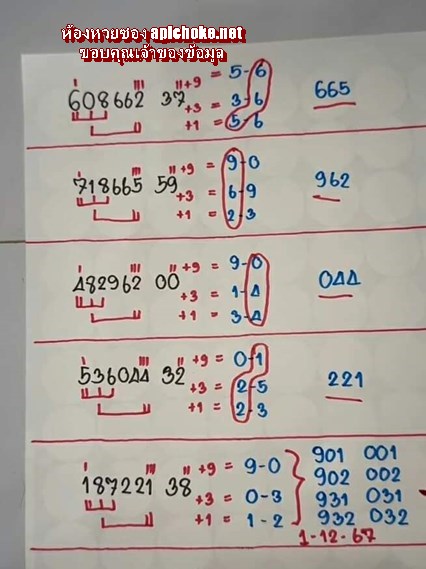 ห้องหวยซอง apichoke.net
ขอบคุณเจ้าของข้อมูล
608662 37 +9 = 5-6
+3 = 3-6 665
+1 = 5-6
718665 59 +9 = 9-0
+3 = 6-9 962
+1 = 2-3
482962 00 +9 = 9-0
+3 = 1-4 044
+1 = 3-4
536044 32 +9 = 0-1
+3 = 2-5 221
+1 = 2-3
187221 38 +9 = 9-0 901 001
902 002
+3 = 0-3 931 031
+1 = 1-2 932 032
1-12-67